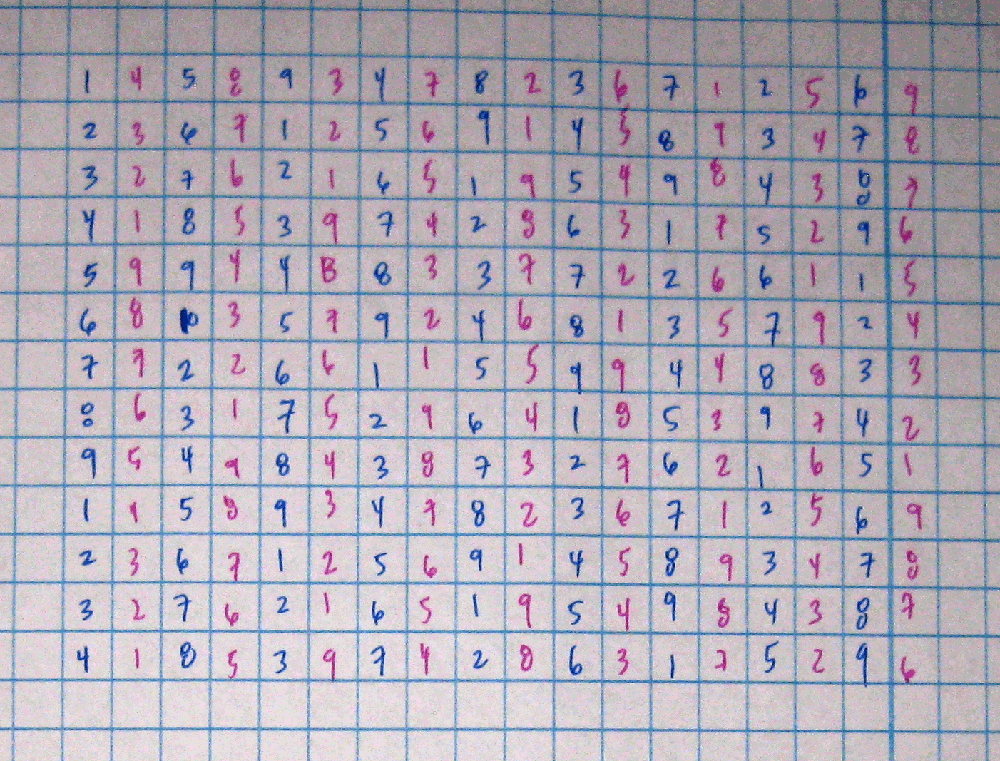 1 4 5 8 9 3 4 7 8 2 3 6 7 1 2 5 6 9
2 3 6 7 1 2 5 6 9 1 4 5 8 9 3 4 7 8
3 2 7 6 2 1 6 5 1 9 5 4 9 8 4 3 8 7
4 1 8 5 3 9 7 4 2 8 6 3 1 7 5 2 9 6
5 9 9 4 4 8 8 3 3 7 7 2 2 6 6 1 1 5
6 8 3 5 7 9 2 4 6 8 1 3 5 7 9 2 4
7 7 2 2 6 6 1 1 5 5 9 9 4 4 8 8 3 3
8 6 3 1 7 5 2 9 6 4 1 8 5 3 9 7 4 2
9 5 4 9 8 4 3 8 7 3 2 7 6 2 1 6 5 1
1 4 5 8 9 3 4 7 8 2 3 6 7 1 2 5 6 9
2 3 6 7 1 2 5 6 9 1 4 5 8 9 3 4 7 8
3 2 7 6 2 1 6 5 1 9 5 4 9 8 4 3 8 7
4 1 8 5 3 9 7 4 2 8 6 3 1 7 5 2 9 6